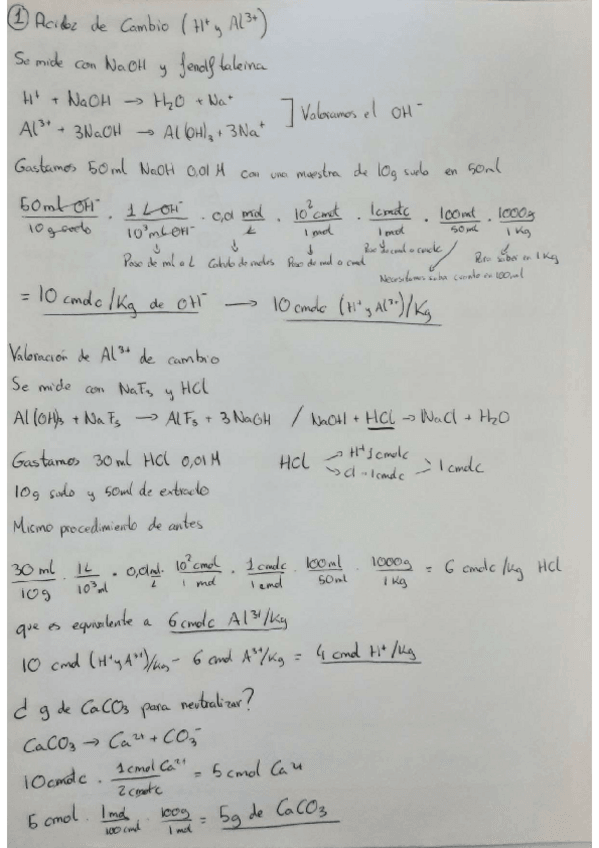 ① Acidez de Cambio (H⁺ y Al³⁺)
Se mide con NaOH y fenolftaleina
H⁺ + NaOH → H₂O + Na⁺
Al³⁺ + 3NaOH → Al(OH)₃ + 3Na⁺ ] Valoramos el OH⁻
Gastamos 50ml NaOH 0,01M con una muestra de 10g suelo en 50ml
50ml OH⁻/10g suelo · 1 L OH⁻/10³ ml OH⁻ · 0,01 mol/L · 10² cmol/1 mol · 1cmolc/1 mol · 100ml/50ml · 1000g/1 Kg
Paso de ml a L Calculo de moles Paso de mol a cmol Paso de cmol a cmolc Necesitamos saber cuanto en 100ml Para saber en 1 Kg
= 10 cmolc/Kg de OH⁻ → 10 cmolc (H⁺ y Al³⁺)/Kg
Valoración de Al³⁺ de cambio
Se mide con NaF₃ y HCl
Al(OH)₃ + NaF₃ → AlF₃ + 3NaOH / NaOH + HCl → NaCl + H₂O
Gastamos 30ml HCl 0,01M HCl → H⁺ 1cmolc → Cl⁻ 1cmolc > 1 cmolc
10g suelo y 50ml de extracto
Mismo procedimiento de antes
30 ml/10g · 1L/10³ml · 0,01mol/L · 10² cmol/1 mol · 1 cmolc/1cmol · 100ml/50ml · 1000g/1 Kg = 6 cmolc/Kg HCl
que es equivalente a 6 cmolc Al³⁺/Kg
10 cmol (H⁺ y Al³⁺)/Kg - 6 cmol Al³⁺/Kg = 4 cmol H⁺/Kg
¿ g de CaCO₃ para neutralizar?
CaCO₃ → Ca²⁺ + CO₃⁻
10cmolc · 1cmol Ca²⁺/2 cmolc = 5 cmol Ca²⁺
5 cmol · 1mol/100 cmol · 100g/1 mol = 5g de CaCO₃